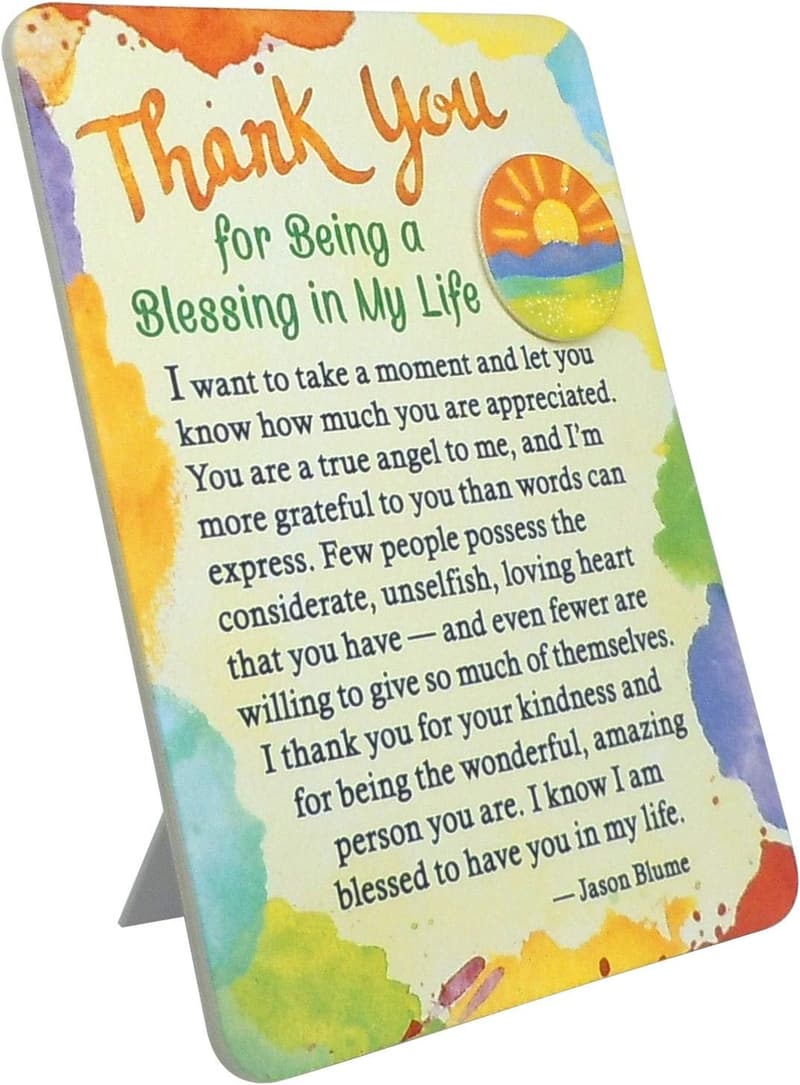 Thank You
for Being a
Blessing in My Life
I want to take a moment and let you
know how much you are appreciated.
You are a true angel to me, and I'm
more grateful to you than words can
express. Few people possess the
considerate, unselfish, loving heart
that you have — and even fewer are
willing to give so much of themselves.
I thank you for your kindness and
for being the wonderful, amazing
person you are. I know I am
blessed to have you in my life.
— Jason Blume